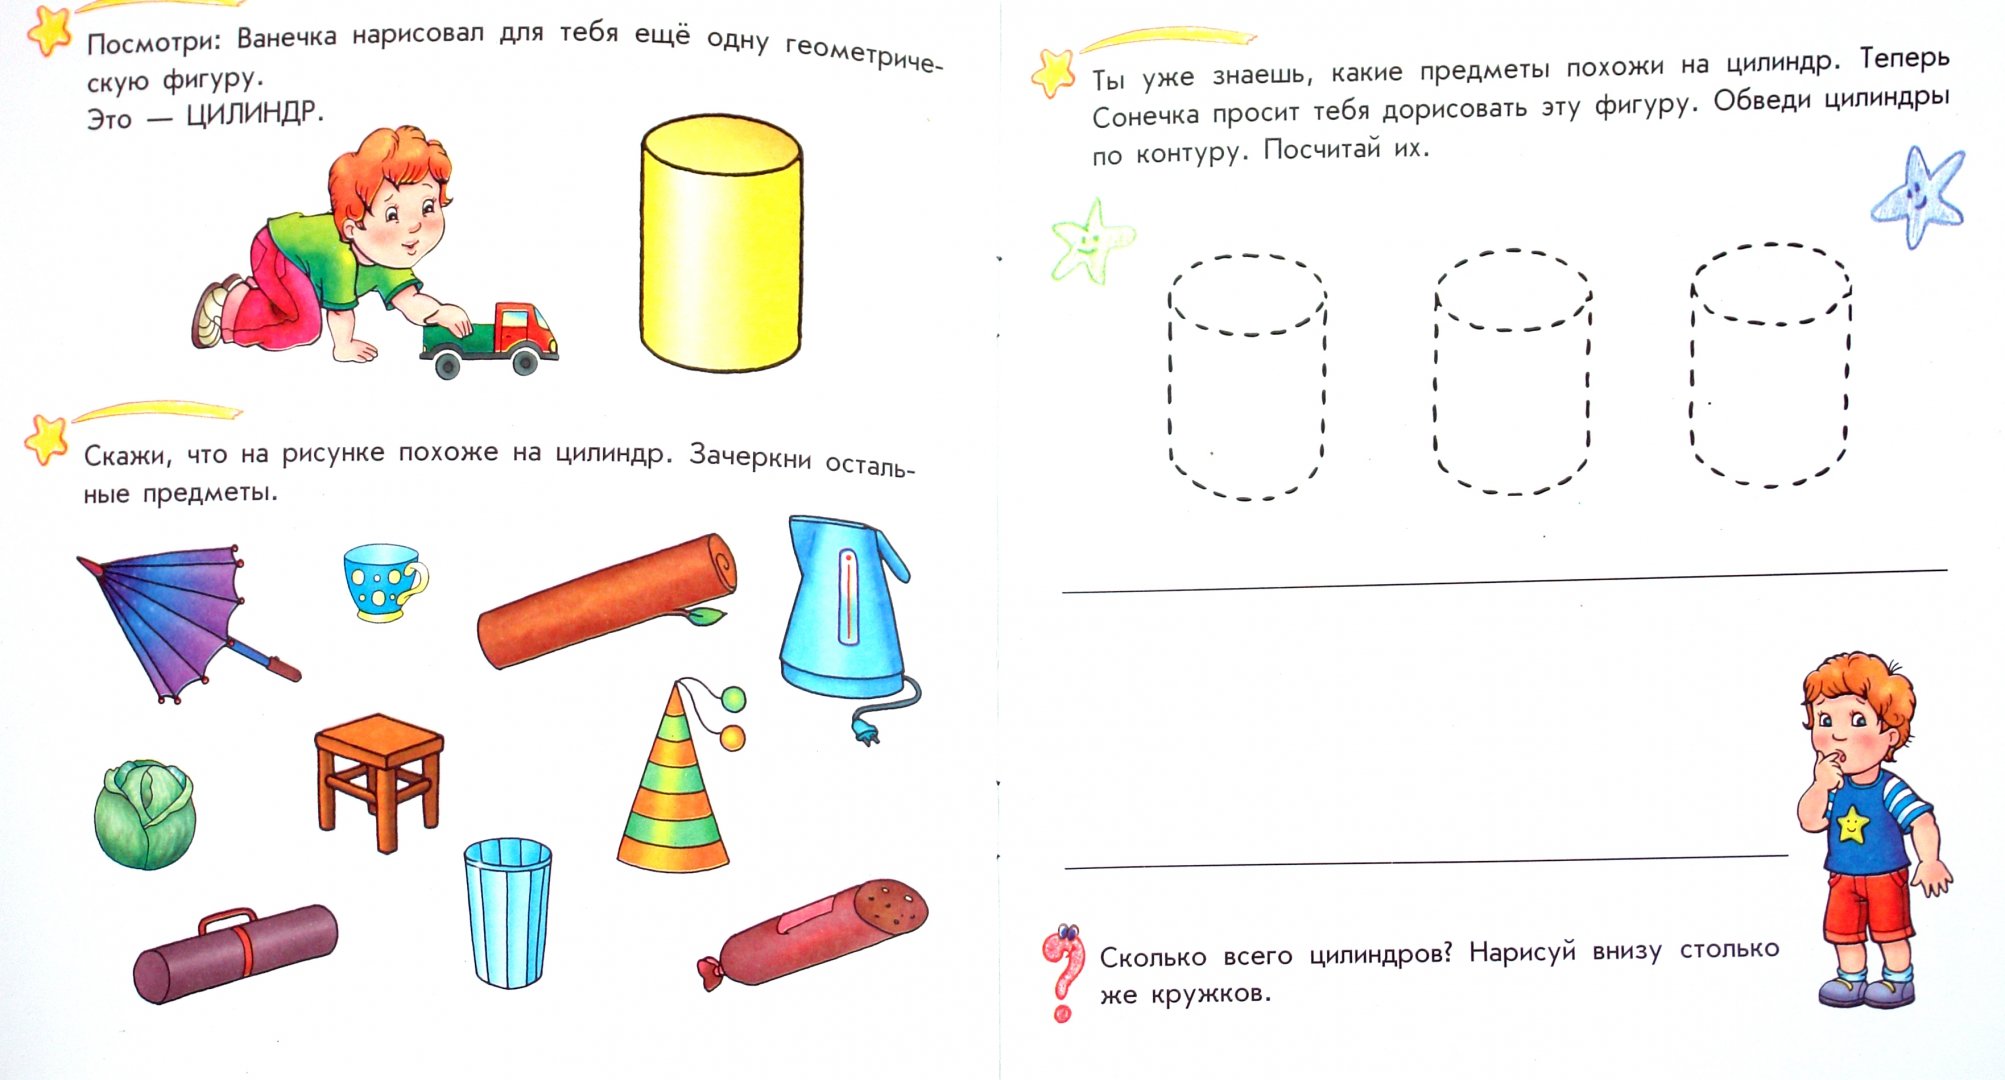 Посмотри: Ванечка нарисовал для тебя ещё одну геометриче-
скую фигуру.
Это — ЦИЛИНДР.
Скажи, что на рисунке похоже на цилиндр. Зачеркни осталь-
ные предметы.
Ты уже знаешь, какие предметы похожи на цилиндр. Теперь
Сонечка просит тебя дорисовать эту фигуру. Обведи цилиндры
по контуру. Посчитай их.
Сколько всего цилиндров? Нарисуй внизу столько
же кружков.